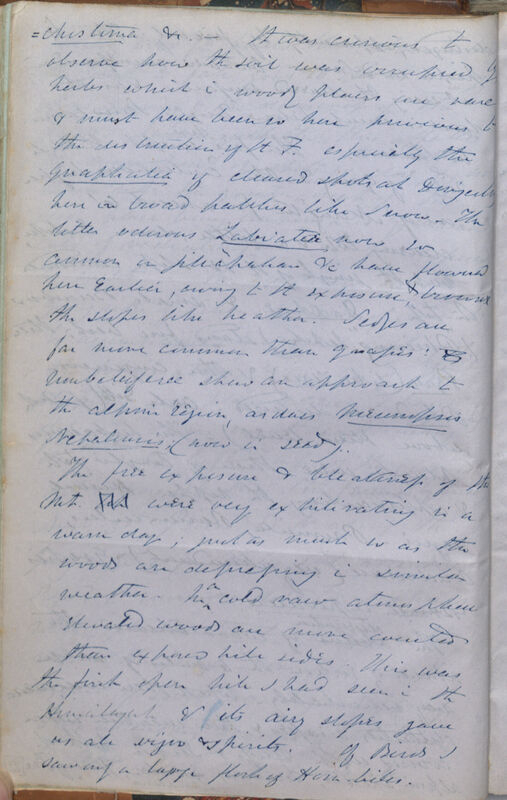 =chistima &c. — It was curious to
observe how the soil was occupied by
herbs which in woody places are rare
& must have been so here previous to
the destruction of the F. especially the
Gnaphalia of cleared spots at
here in broad patches like Snow. The
bitter odorous Labiatae now so
common on &c have flowered
here Earlier, owing to the exposure, & brown
the slopes like heather. Sedges are
far more common than grasses:
umbelliferae show an approach to
the alpine region, as does Meconopsis
Nepalensis (now in seed).
The free exposure & bleakness of the
Mt. were very exhilirating in a
warm day, just as much so as the
woods are depressing in similar
weather. In a cold raw atmosphere
elevated woods are more coveted
than exposed hill sides. This was
the first open hill I had seen in the
Himalayah & its airy slopes gave
us all vigor & spirits. Of Birds I
saw only a large flock of Horn-bills.